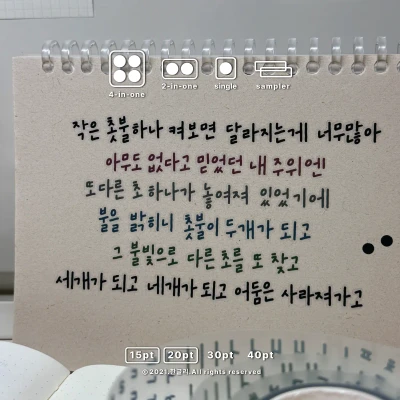 4-in-one
2-in-one
single
sampler
작은 촛불하나 켜보면 달라지는게 너무많아
아무도 없다고 믿었던 내 주위엔
또다른 초 하나가 놓여져 있었기에
불을 밝히니 촛불이 두개가 되고
그 불빛으로 다른초를 또 찾고
세개가 되고 네개가 되고 어둠은 사라져가고
15pt 20pt 30pt 40pt
All rights reserved